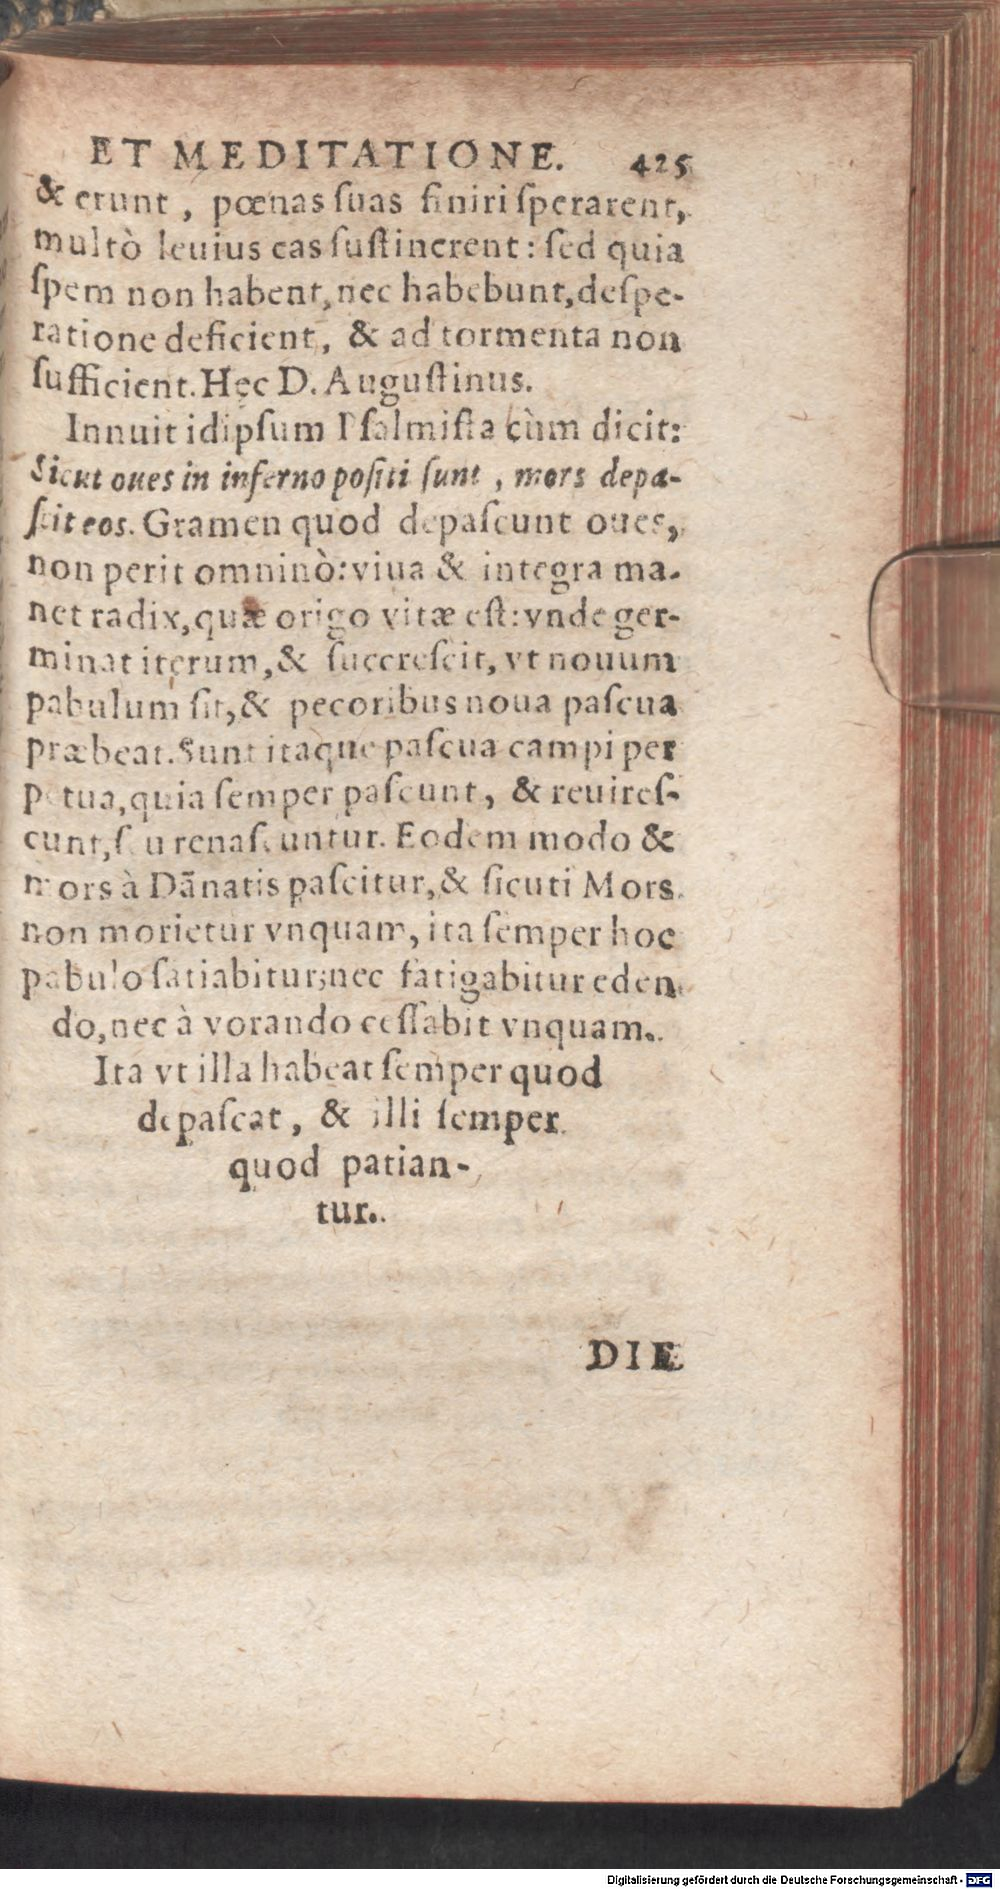 ET MEDITATIONE. 425
& erunt, pœnas ſuas finiri ſperarent,
multò leuius eas ſuſtinerent: ſed quia
ſpem non habent, nec habebunt, deſpe-
ratione deficient, & ad tormenta non
ſufficient. Hęc D. Auguſtinus.
Innuit idipſum Pſalmiſta cùm dicit:
Sicut oues in inferno poſiti ſunt, mors depa-
ſcit eos. Gramen quod depaſcunt oues,
non perit omninò: viua & integra ma-
net radix, quæ origo vitæ eſt: vnde ger-
minat iterum, & ſuccreſcit, vt nouum
pabulum ſit, & pecoribus noua paſcua
præbeat. Sunt itaque paſcua campi per
petua, quia ſemper paſcunt, & reuireſ-
cunt, ſeu renaſcuntur. Eodem modo &
mors à Dãnatis paſcitur, & ſicuti Mors
non morietur vnquam, ita ſemper hoc
pabulo ſatiabitur; nec fatigabitur eden
do, nec à vorando ceſſabit vnquam.
Ita vt illa habeat ſemper quod
depaſcat, & illi ſemper
quod patian-
tur.
DIE
Digitalisierung gefördert durch die Deutsche Forschungsgemeinschaft - DFG